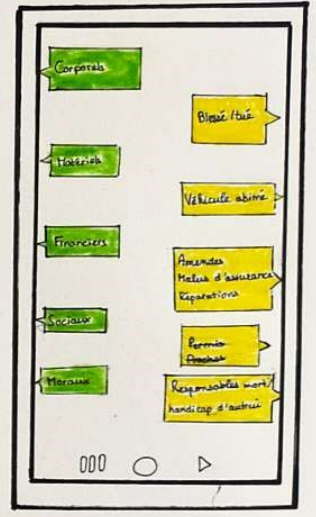 Corporels
Blessé / tué
Matériels
Véhicule abimé
Financiers
Amendes
Malus d'assurance
Réparations
Sociaux
Permis
Moraux
Responsables mort/
handicap d'autrui